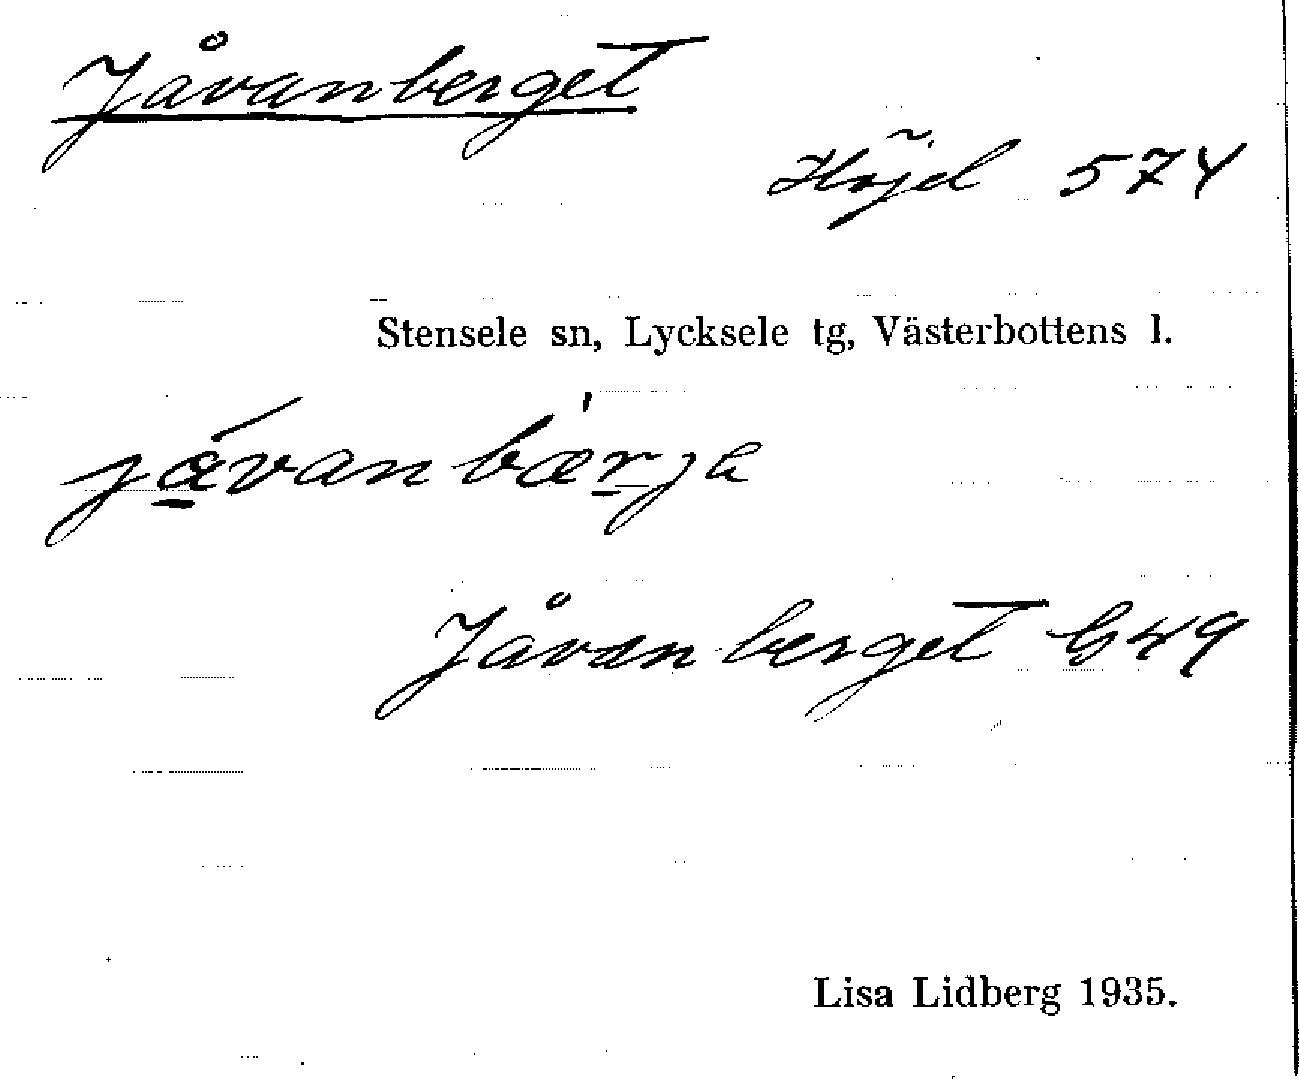 Jåvanberget
Höjd 574
Stensele sn, Lycksele tg, Västerbottens l.
jávanbærja
Jåvanberget G49
Lisa Lidberg 1935.